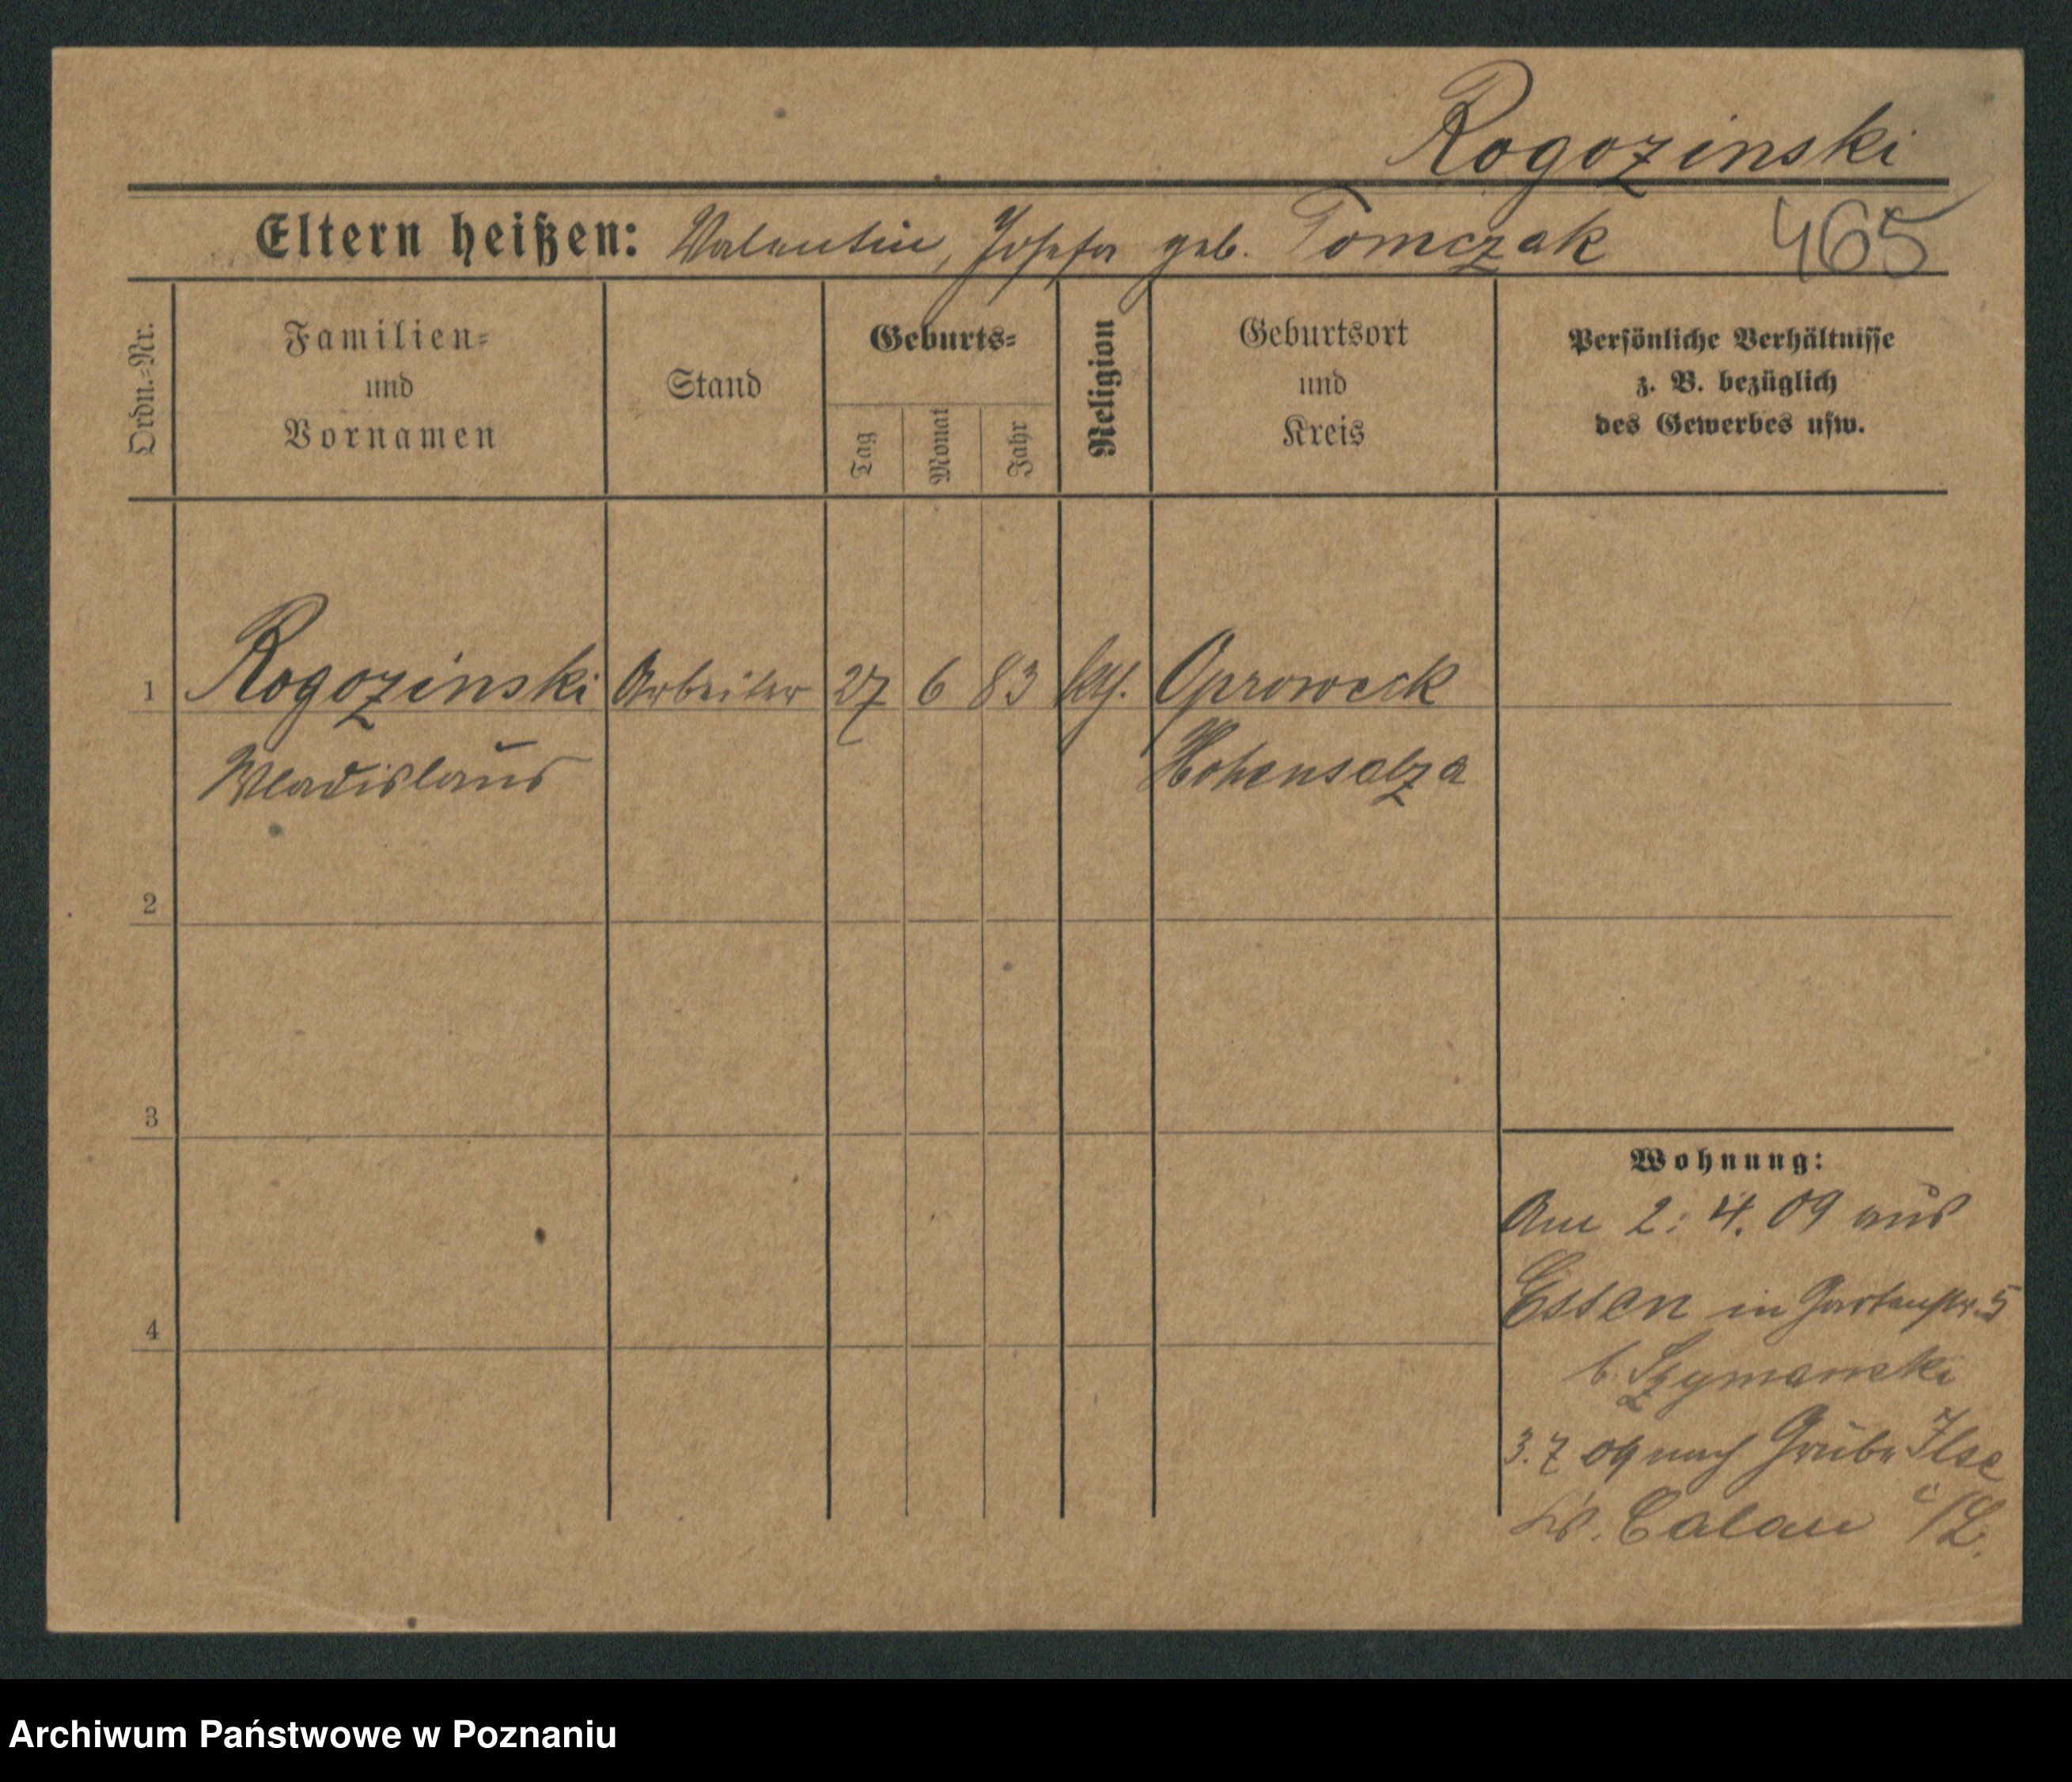 Rogozinski
Eltern heißen: Valentin, Josefa geb. Tomczak 465
Ordn.=Nr.
Familien=
und
Vornamen
Stand
Geburts=
Tag
Monat
Jahr
Religion
Geburtsort
und
Kreis
Persönliche Verhältnisse
z. B. bezüglich
des Gewerbes usw.
1 Rogozinski Arbeiter 27 6 83 kth. Oproweck
Wladislaus Hohensalza
2
3
4
Wohnung:
Am 2. 4. 09 aus
Essen in Gartenstr. 5
b. Szymanski
3. 7 09 nach Grube Ilse
Kr. Calau i/L.
Archiwum Państwowe w Poznaniu